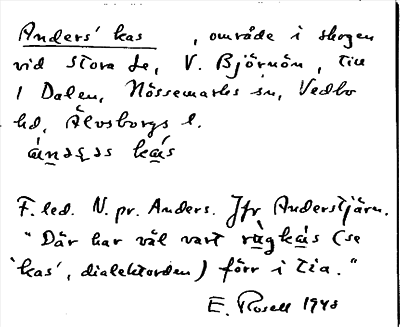 Anders' kas, område i skogen
vid Stora Le, V. Björnön, till
1 Dalen, Nössemarks sn, Vedbo
hd, Älvsborgs l.
kás
F. led. N. pr. Anders. Jfr Anderstjärn.
"Där har väl vart rùgkás (se
'kas', dialektorden) förr i tia."
E. Rosell 1943